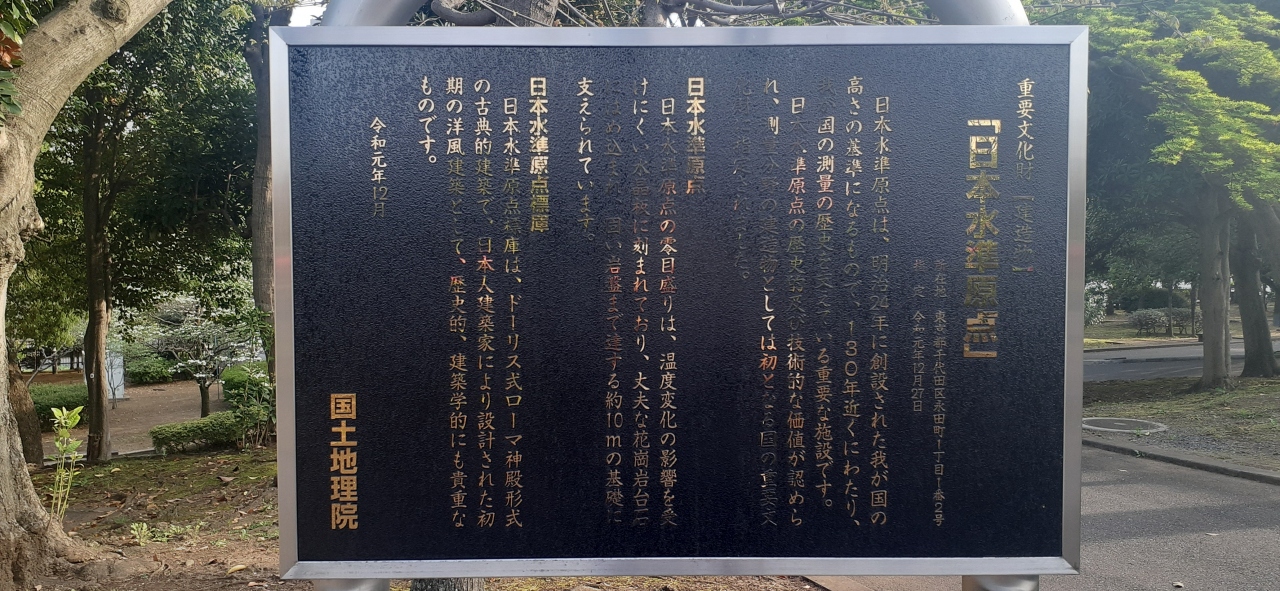 重要文化財「建造物」
「日本水準原点」
所在地 東京都千代田区永田町1丁目1番2号
指 定 令和元年12月27日
日本水準原点は、明治24年に創設された我が国の
高さの基準になるもので、130年近くにわたり、
我が国の測量の歴史を支えている重要な施設です。
日本水準原点の歴史的及び技術的な価値が認めら
れ、測量分野の建造物としては初となる国の重要文
化財に指定されました。
日本水準原点
日本水準原点の零目盛りは、温度変化の影響を受
けにくい水晶板に刻まれており、丈夫な花崗岩台石
にはめ込まれ、固い岩盤まで達する約10mの基礎に
支えられています。
日本水準原点標庫
日本水準原点標庫は、ドーリス式ローマ神殿形式
の古典的建築で、日本人建築家により設計された初
期の洋風建築として、歴史的、建築学的にも貴重な
ものです。
令和元年12月
国土地理院